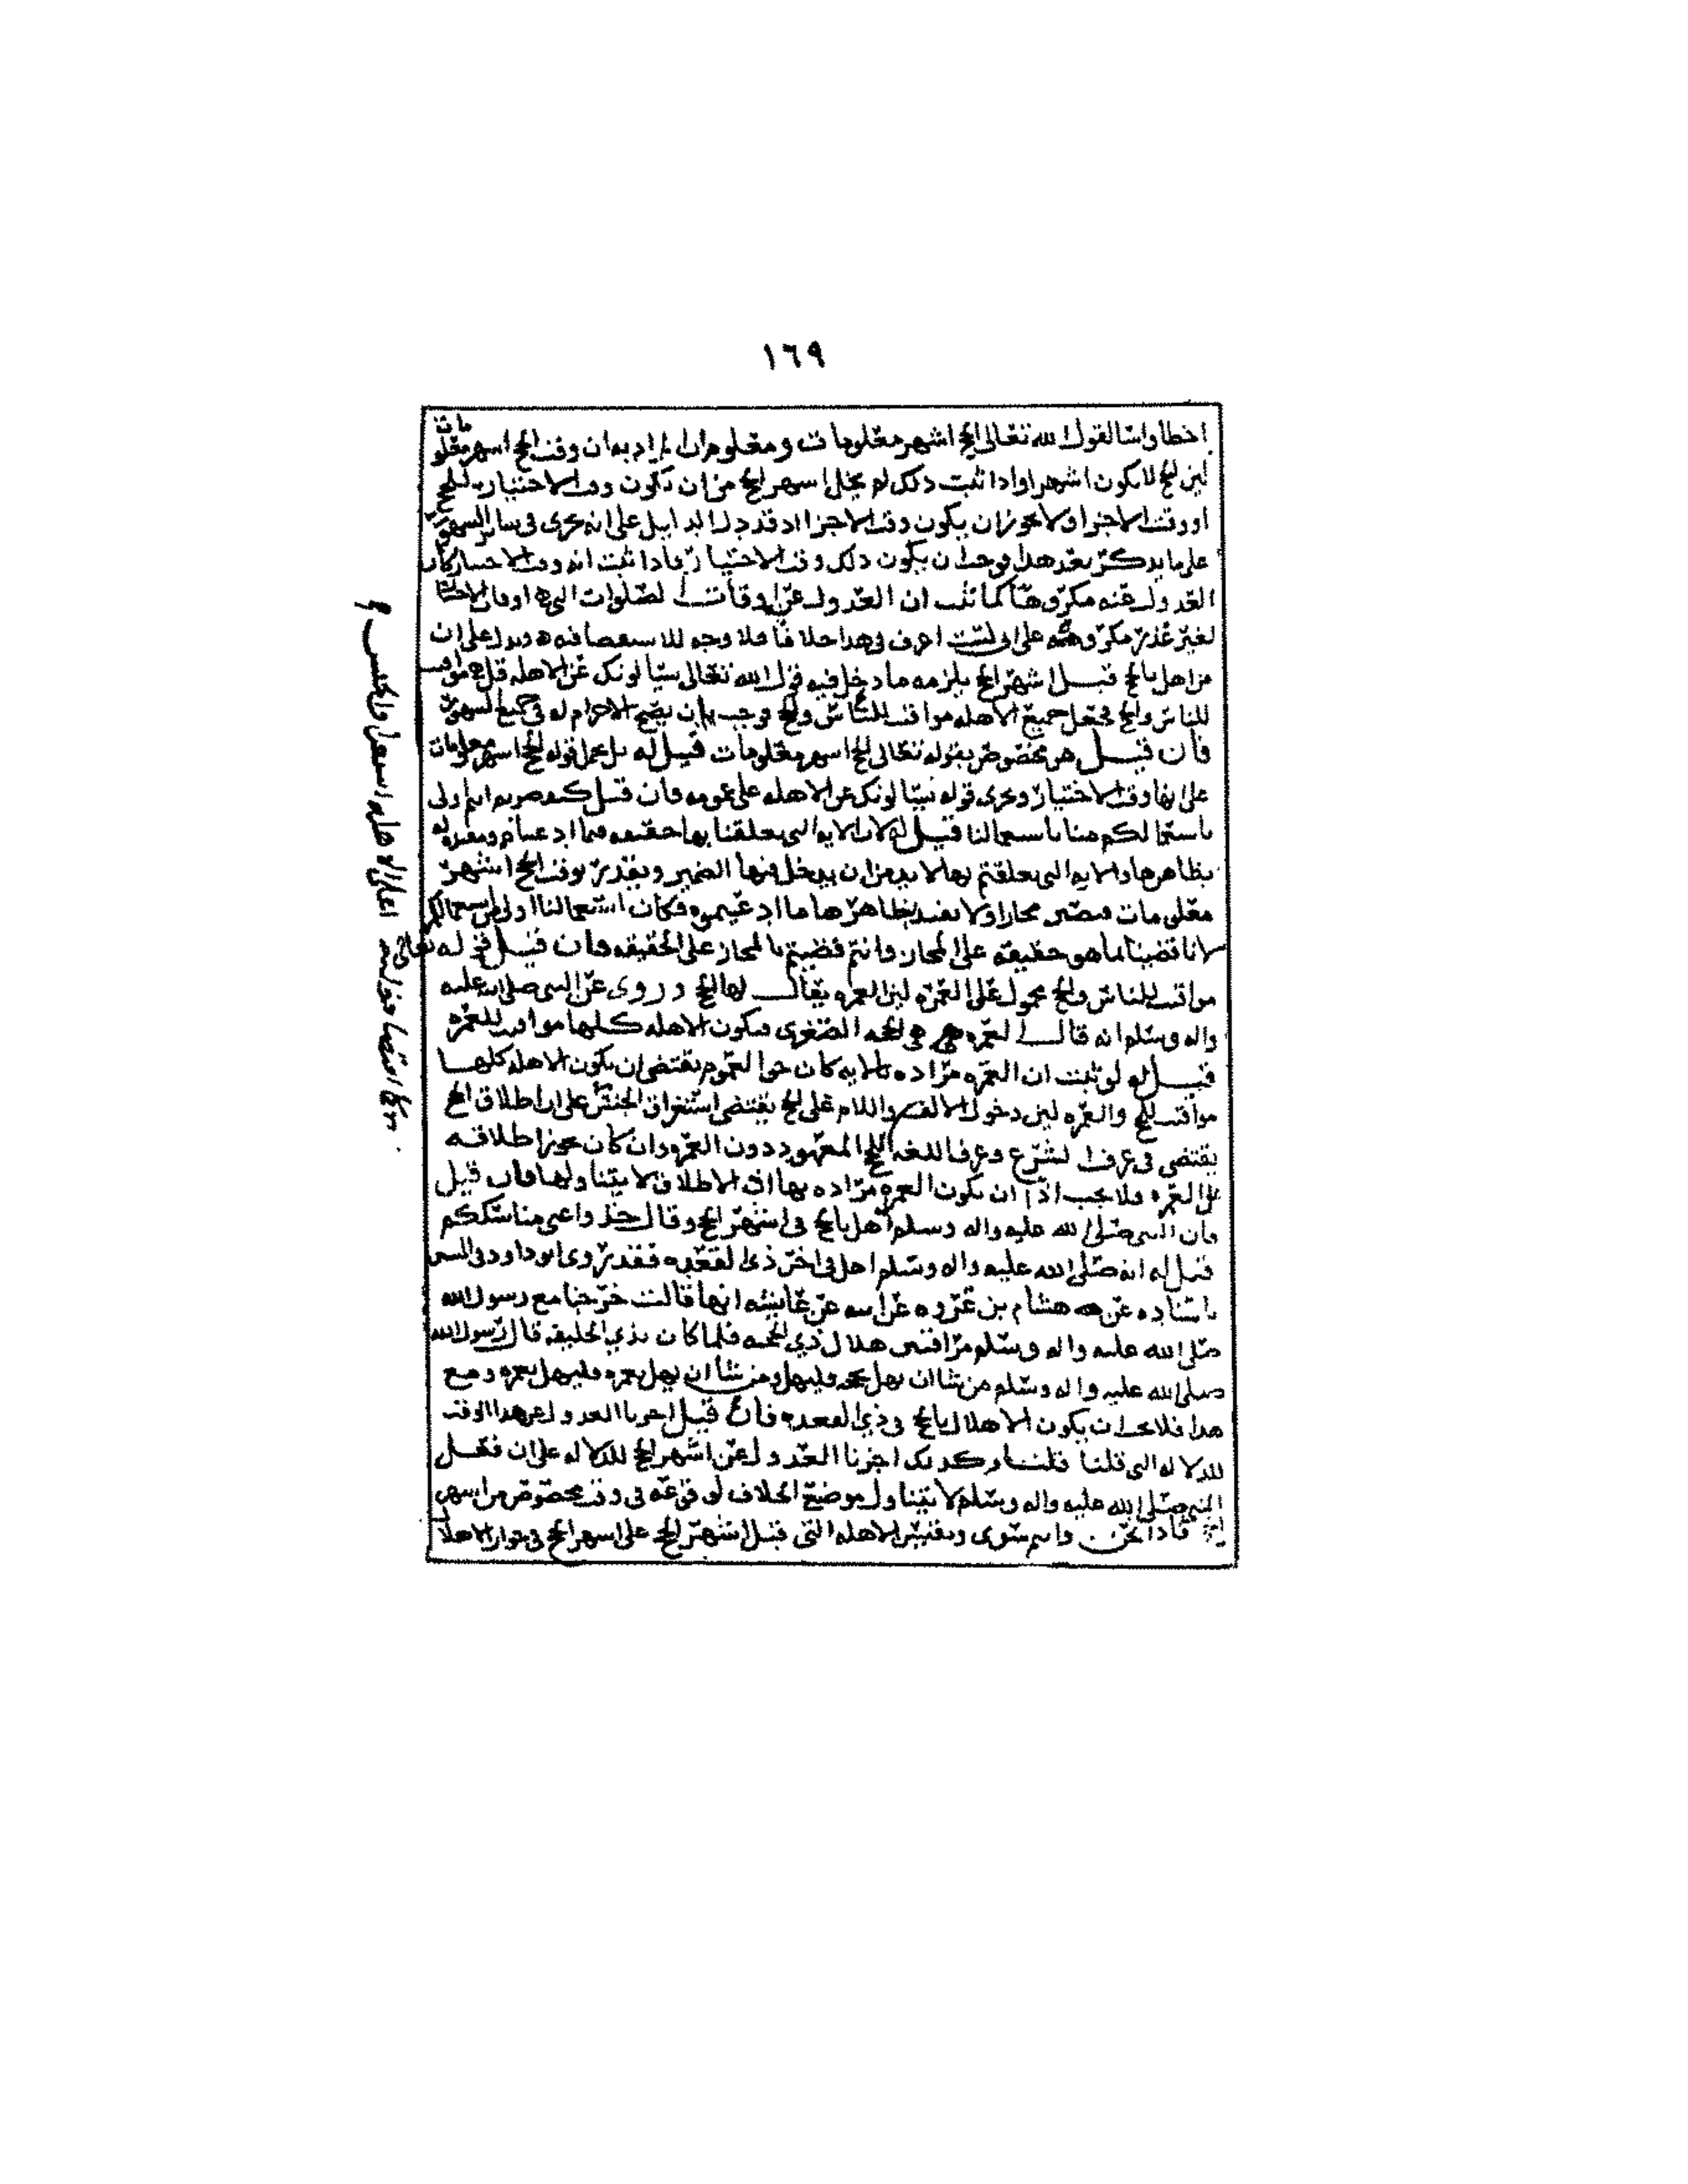 ١٦٩
اخطا واسا لقول الله تعالى الحج اشهر معلومات ومعلوم ان المراد به ان وقت الحج اسهر معلومات
لين الحج لا يكون اشهرا واذا ثبت ذلك لم يخل اسهر الحج من ان تكون وقت الاختيار للحج
او وقت الاجزا ولا يجوز ان يكون وقت الاجزا اذ قد دل الدليل على انه يجزي في ساير الشهور
على ما يذكر بعد هذا فوجب ان يكون ذلك وقت الاختيار فاذا ثبت انه وقت الاختيار كان
العدول عنه مكروها كما ثبت ان العدول عن اوقات الصلوات التي هي اوقات الاختيار
لغير عذر مكروهه على اني لست اعرف في هذا خلافا فلا وجه للاستقصا فيه ويدل على ان
من اهل بالحج قبل اشهر الحج يلزمه ما دخل فيه قول الله تعالى يسالونك عن الاهله قل هي مواقيت
للناس والحج فجعل جميع الاهله مواقيت للناس والحج فوجب ان يصح الاحرام له في جميع الشهور
فان قيل هو مخصوص بقوله تعالى الحج اسهر معلومات قيل له بل يحمل قوله الحج اسهر معلومات
على انها وقت الاختيار ويجري قوله يسالونك عن الاهله على عمومه فان قيل كيف صرتم انتم اولى
باستعمالكم منا باستعمالنا قيل له لان الايه التي تعلقنا بها حقيقه فيما ادعيناه ومفيده له
بظاهرها والايه التي تعلقتم بها لا بد من ان يدخل فيها الضمير وتقديره وقت الحج اشهر
معلومات فيصير مجازا ولا يفيد بظاهرها ما ادعيتموه فكان استعمالنا اولى من استعمالكم
لانا قضينا بما هو حقيقه على المجاز وانتم قضيتم بالمجاز على الحقيقه فان قيل قوله تعالى
مواقيت للناس والحج محمول على العمره لين العمره يقال لها الحج وروي عن النبي صلى الله عليه
واله وسلم انه قال العمره هي الحجه الصغرى فيكون الاهله كلها مواقيت للعمره
قيل له لو ثبت ان العمره مراده بالايه كان حق العموم يقتضي ان يكون الاهله كلها
مواقيت للحج والعمره لين دخول الالف واللام على الحج يقتضي استغراق الجنس على ان اطلاق الحج
يقتضي في عرف الشرع وعرف اللغه الحج المعهود دون العمره وان كان يجوز اطلاقه
على العمره فلا يجب اذا ان يكون العمره مراده بها اذ الاطلاق لا يتناولها فان قيل
فان النبي صلى الله عليه واله وسلم اهل بالحج في اشهر الحج وقال خذوا عني مناسككم
قيل له انه صلى الله عليه واله وسلم اهل في اخر ذي القعده فقد روى ابو داود في السنن
باسناده عن هشام بن عروه عن ابيه عن عايشه انها قالت خرجنا مع رسول الله
صلى الله عليه واله وسلم موافين هلال ذي الحجه فلما كان بذي الحليفه قال رسول الله
صلى الله عليه واله وسلم من شا ان يهل بحجه فليهل ومن شا ان يهل بعمره فليهل بعمره ومع
هذا فلا يجب ان يكون الاهلال بالحج في ذي القعده فان قيل اجزنا العدول عن هذا الوقت
للدلاله التي قلنا قلنا وكذلك اجزنا العدول عن اشهر الحج للدلاله على ان فعل
النبي صلى الله عليه واله وسلم لا يتناول موضع الخلاف لوقوعه في وقت مخصوص من اسهر
الحج فاذا نحن وانتم سوى ونقيس الاهله التي قبل اشهر الحج على اسهر الحج في جواز الاهلال